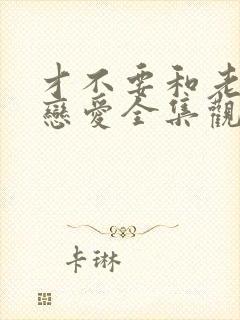 才不要和老
戀愛全集觀
卡琳